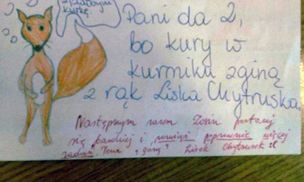 kurkę.
Pani da 2,
bo kury w
kurniku zginą
z rąk Liska Chytruska
Następnym razem Zosiu postaraj
się bardziej i poprawnie więcej
zadań Lisek Chytrusek